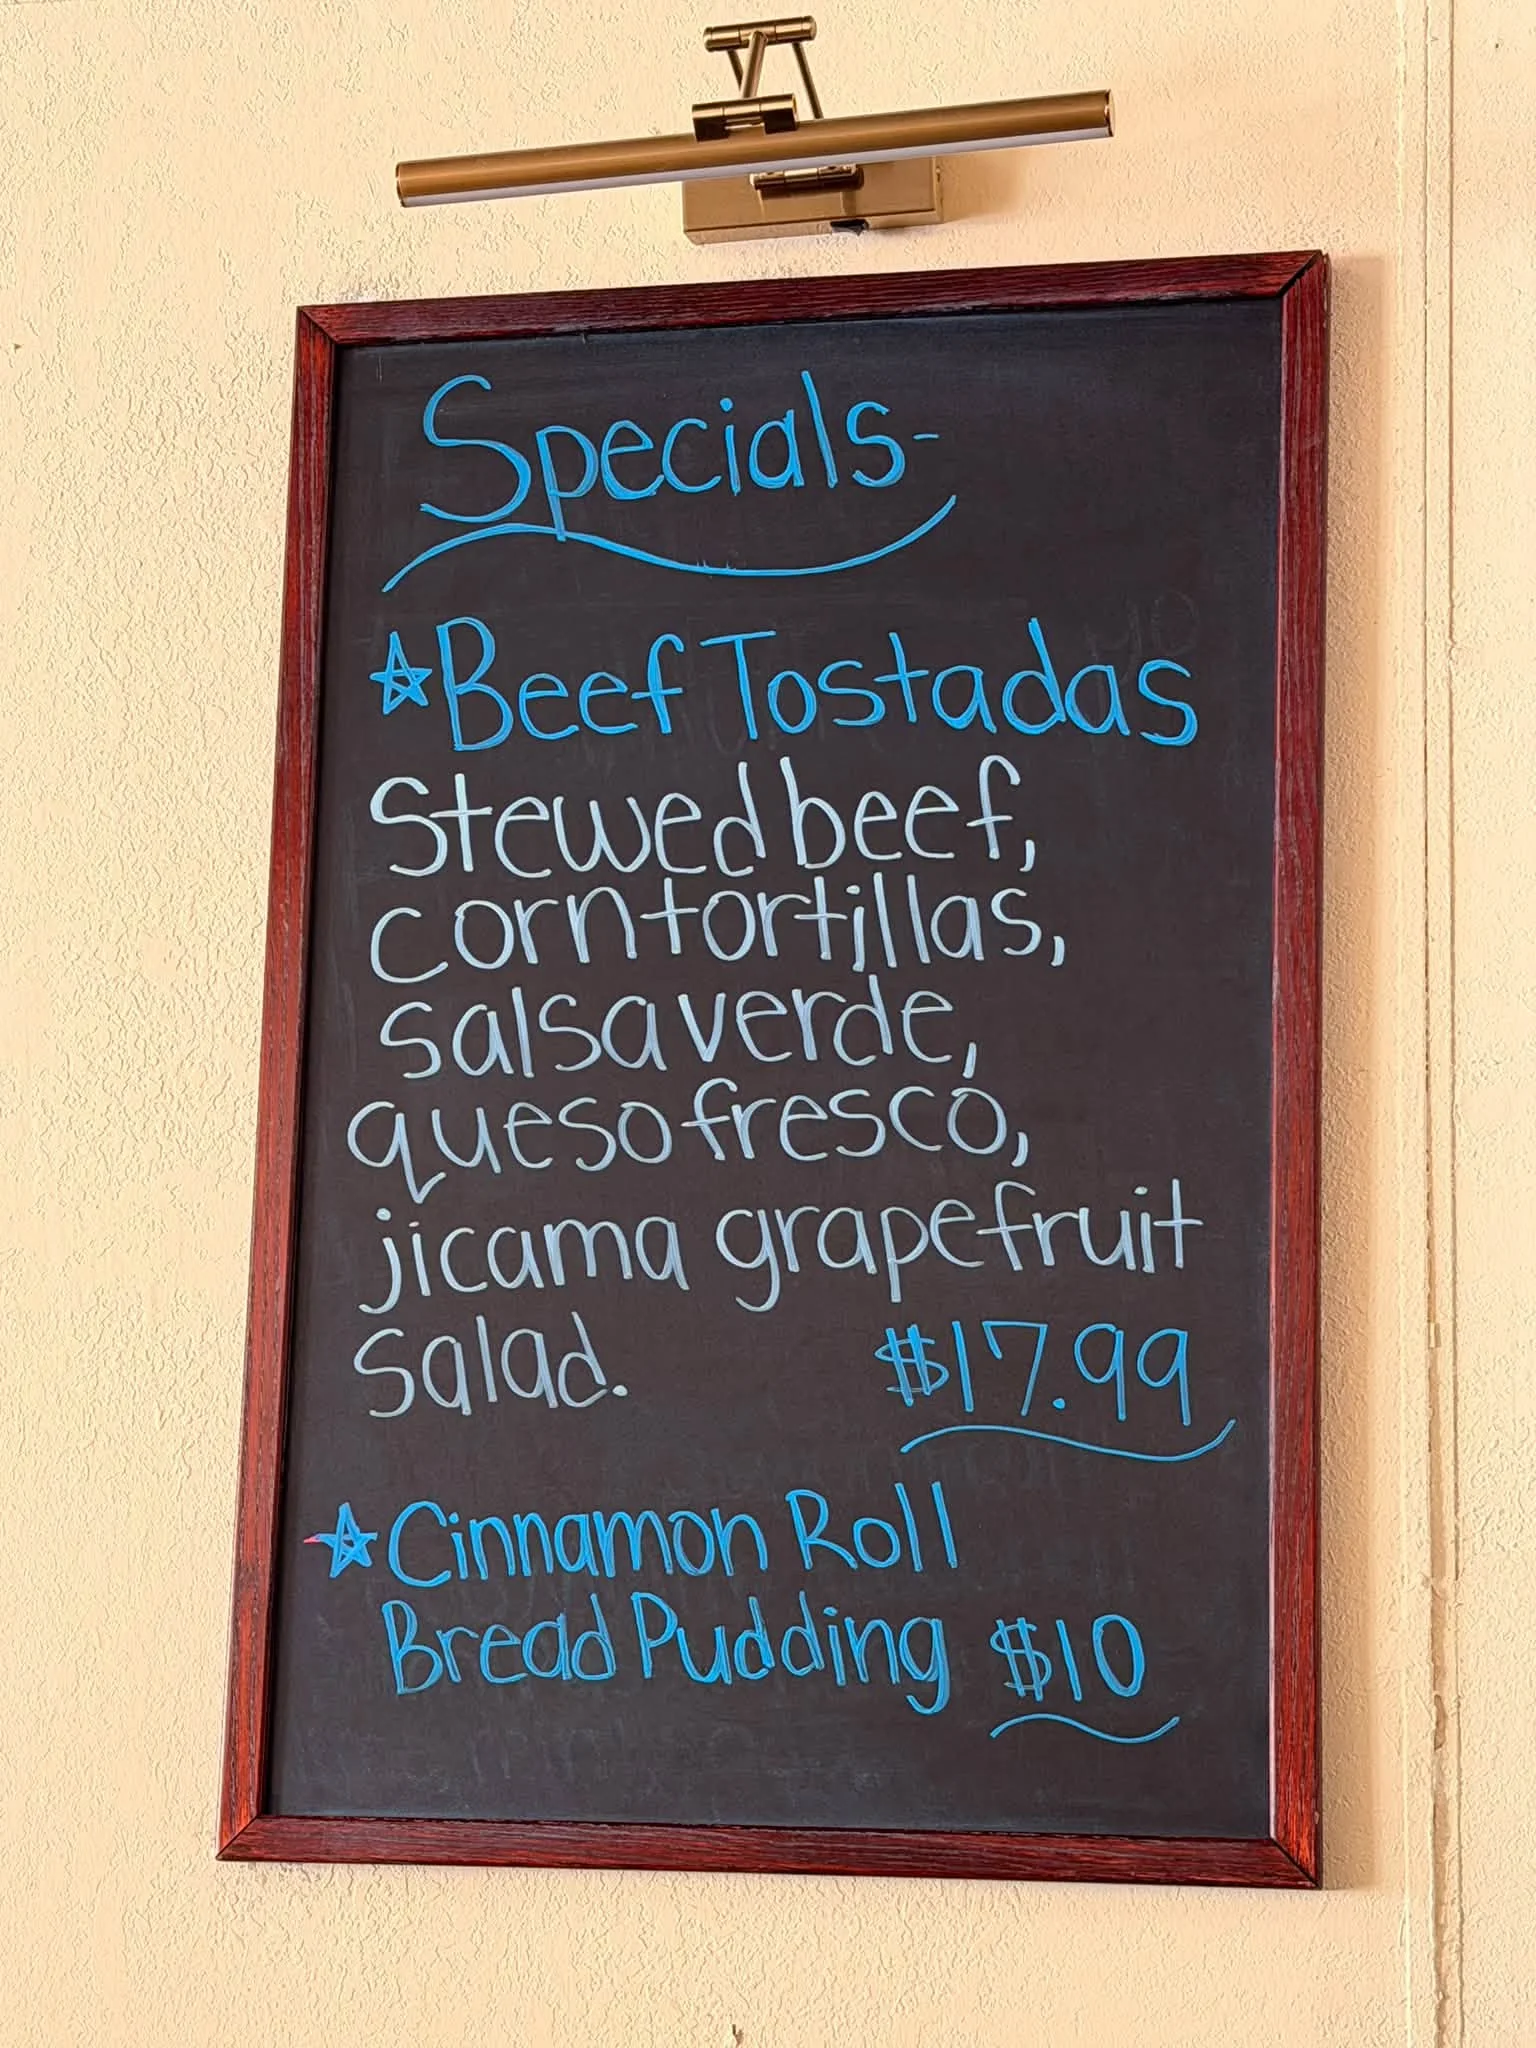 Specials-
Beef Tostadas
Stewed beef,
corn tortillas,
salsa verde,
queso fresco,
jicama grapefruit
salad. $17.99
Cinnamon Roll
Bread Pudding $10